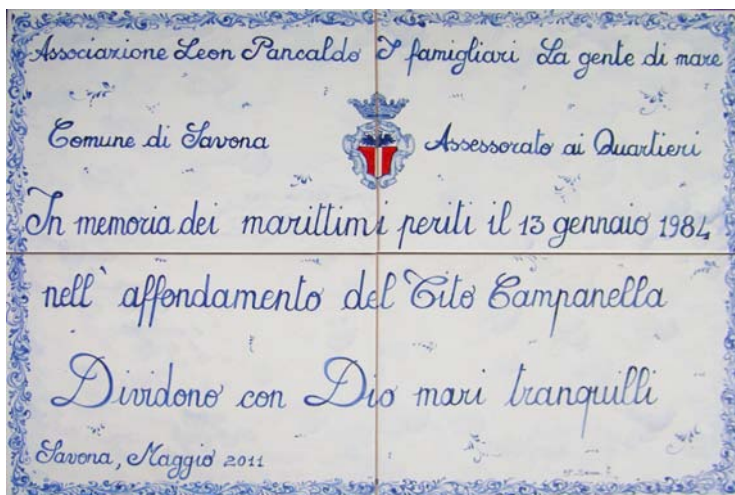 Associazione Leon Pancaldo I famigliari La gente di mare
Comune di Savona Assessorato ai Quartieri
In memoria dei marittimi periti il 13 gennaio 1984
nell' affondamento del Tito Campanella
Dividono con Dio mari tranquilli
Savona, Maggio 2011